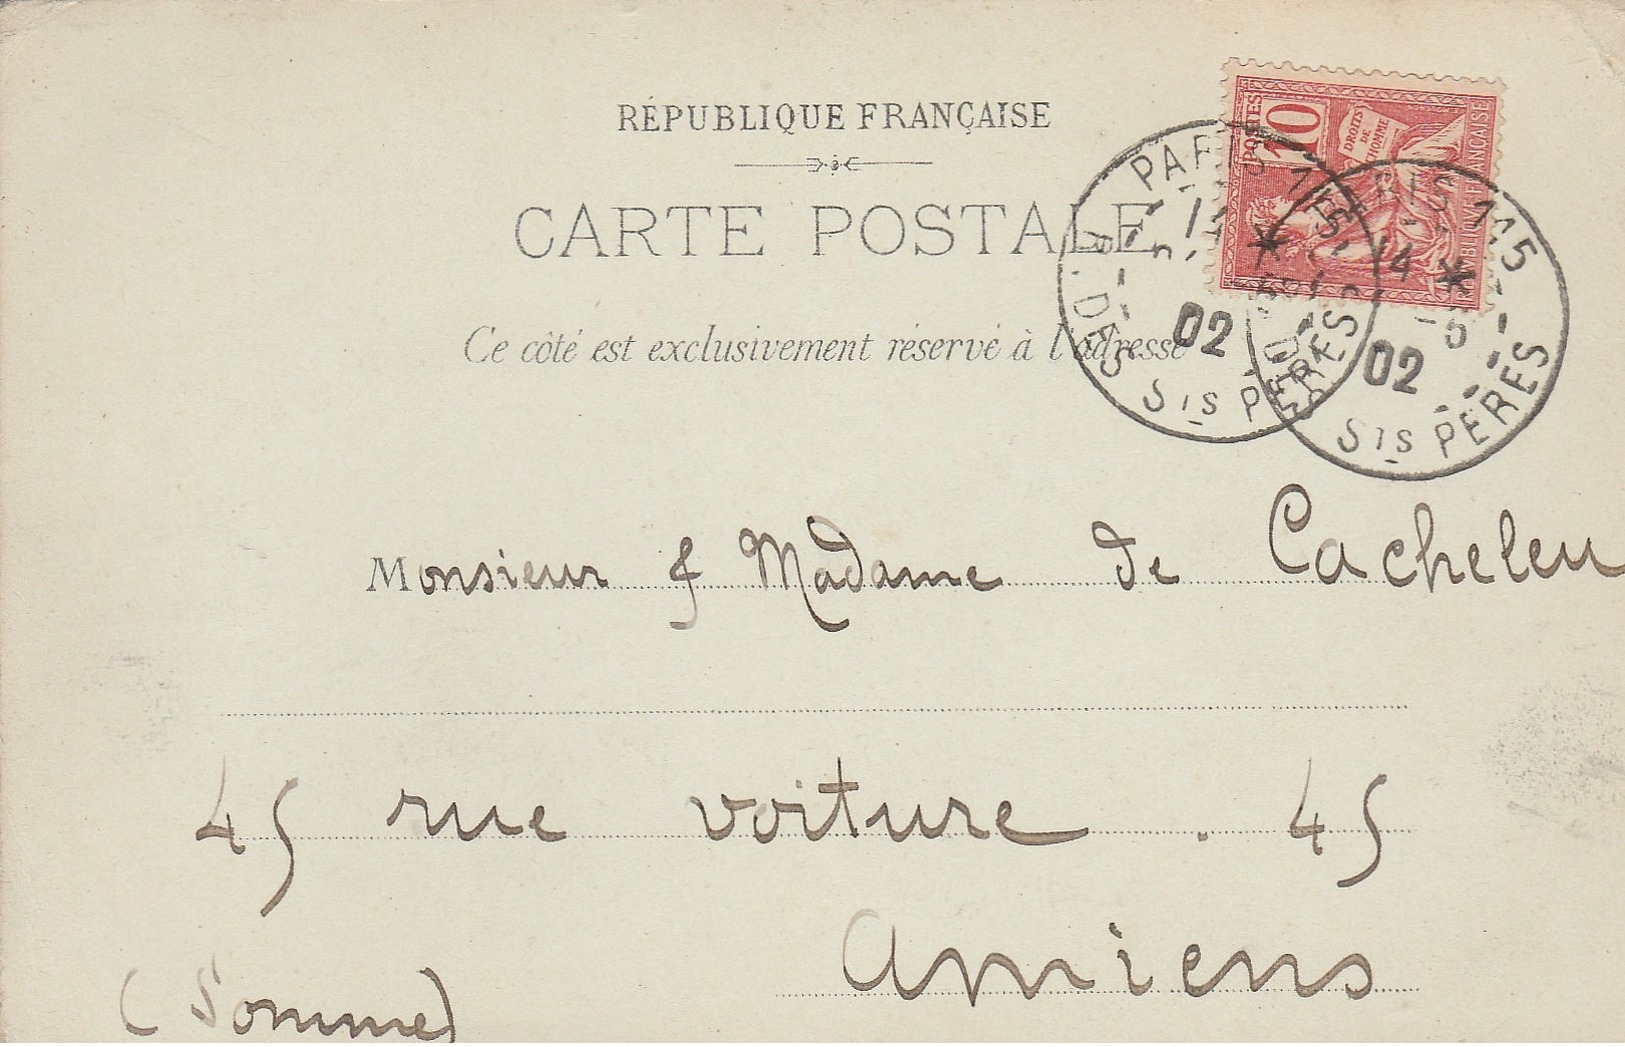 RÉPUBLIQUE FRANÇAISE
CARTE POSTALE
Ce côté est exclusivement réservé à l'adresse
POSTES
10
DROITS DE L'HOMME
RÉPUBLIQUE FRANÇAISE
PARIS 115
14
02
DES Sts PÈRES
PARIS 115
14
5
02
DES Sts PERES
Monsieur & Madame de Cacheleu
45 rue voiture . 45
Amiens
(Somme)